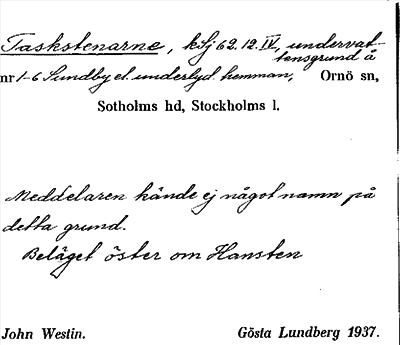 Taskstenarne, kSj 62.12.IV, undervat-
tensgrund å
nr 1-6 Sundby el. underlyd. hemman, Ornö sn,
Sotholms hd, Stockholms l.
Meddelaren kände ej något namn på
detta grund.
Beläget öster om Hansten
John Westin. Gösta Lundberg 1937.